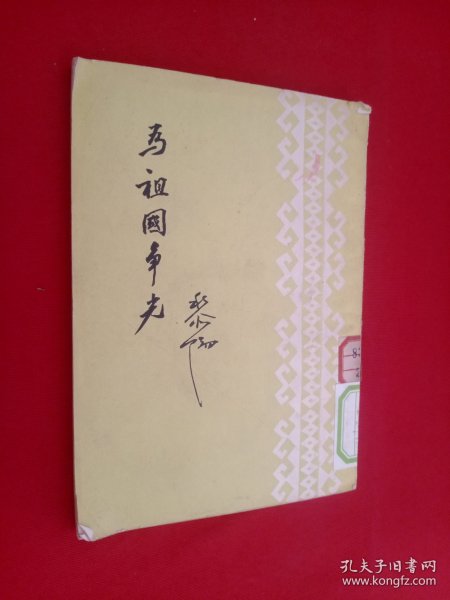 为祖國争光
黎
8
孔夫子旧书网
www.kongfz.com